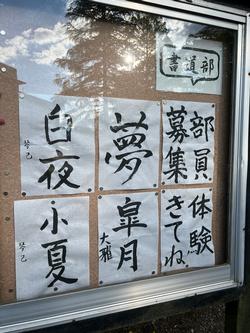 書道部
部員
募集
体験
きてね
夢
皐月
大雅
白夜
琴己
小夏
琴己